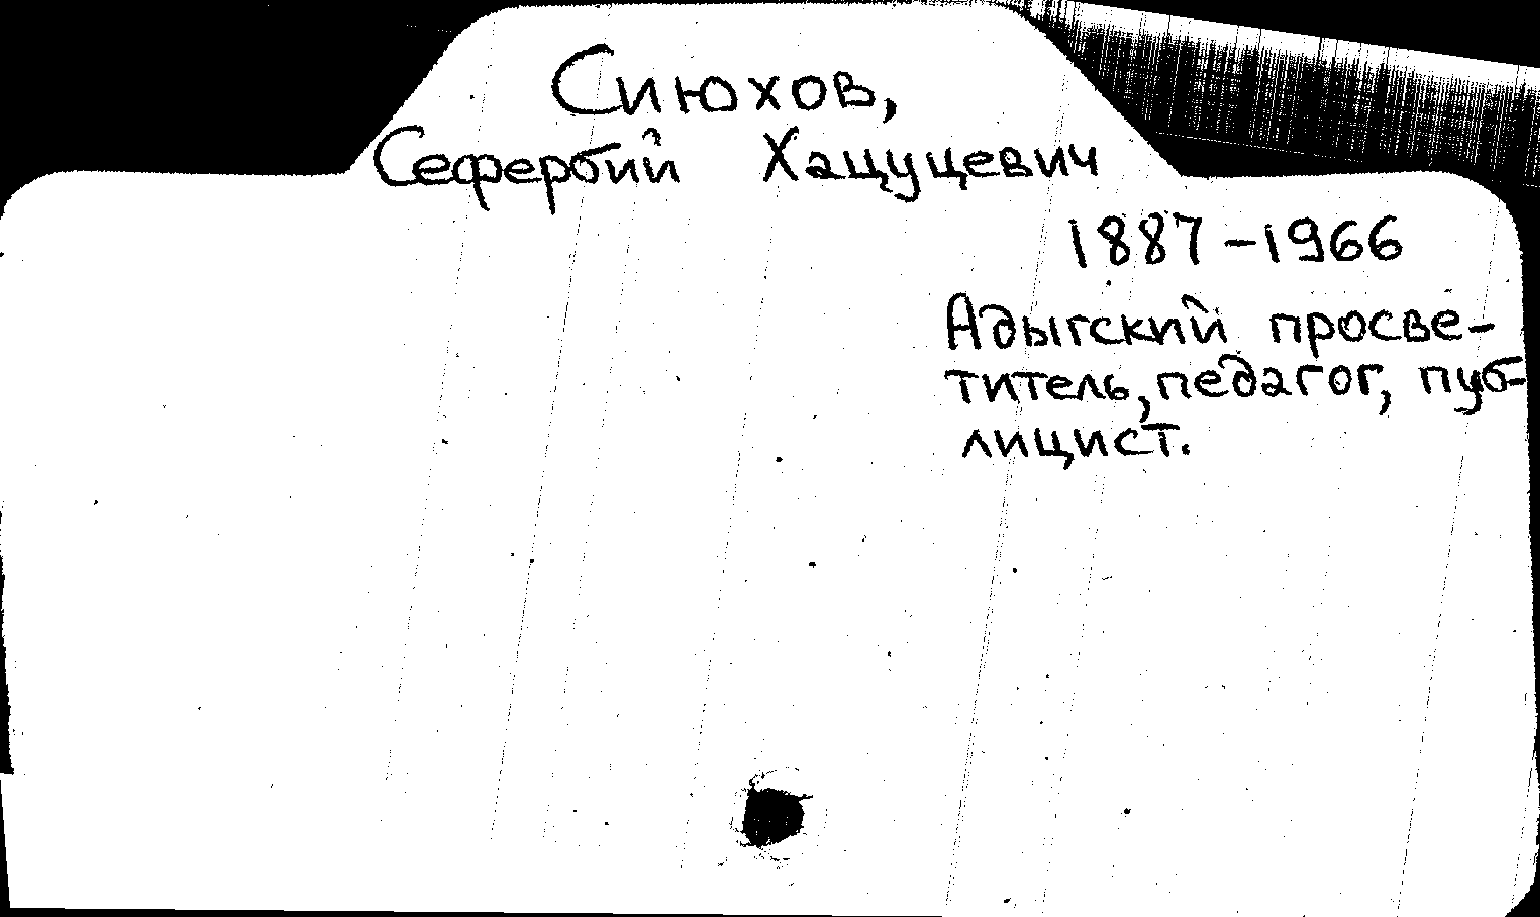 Сиюхов,
Сефербий Хацуцевич
1887-1966
Адыгский просве-
титель, педагог, пуб-
лицист.